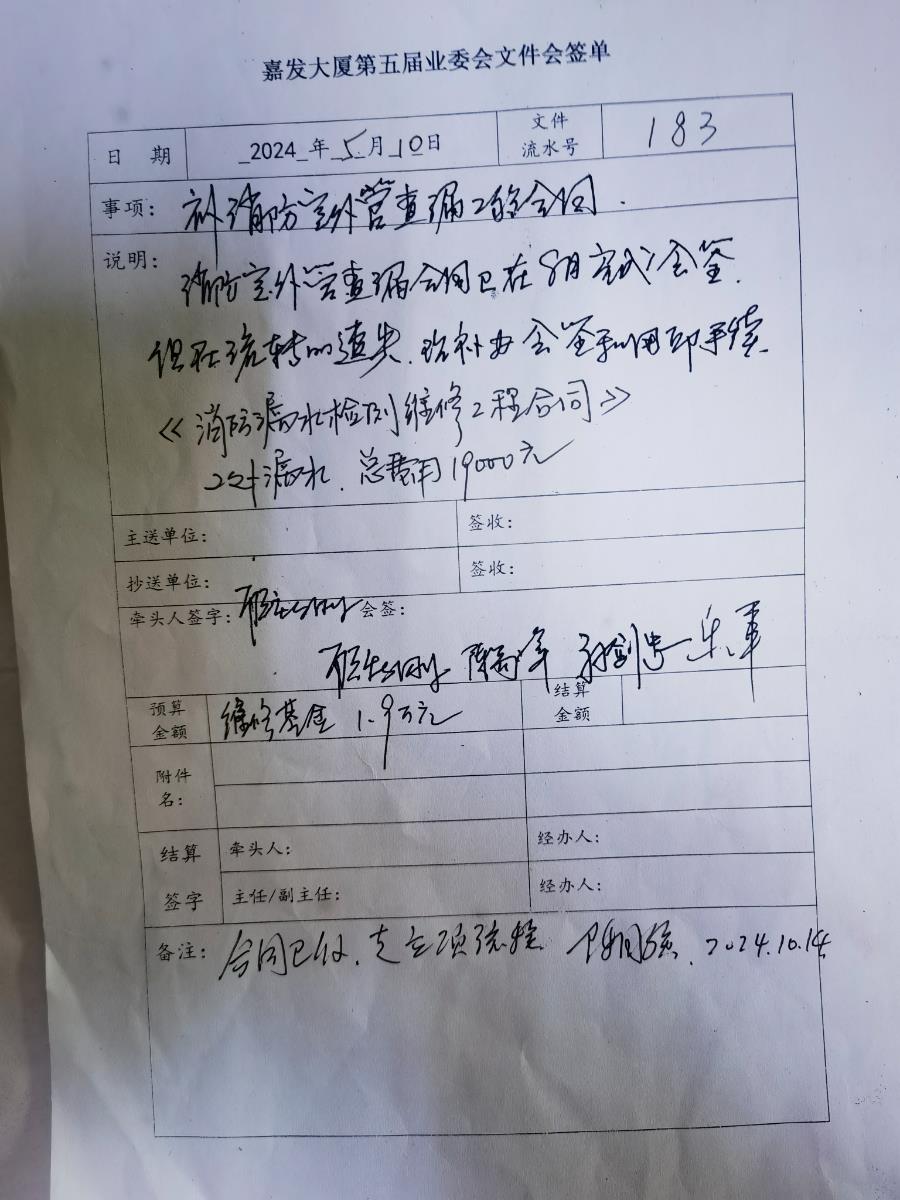 嘉发大厦第五届业委会文件会签单
日 期 2024 年 5 月 10 日 文件流水号 183
事项： 补消防室外管查漏工程合同.
说明： 消防室外管查漏合同已在8月完成会签.
但在流转时遗失.现补办会签和用印手续.
《消防漏水检测维修工程合同》
2处漏水.总费用19000元
主送单位： 签收：
抄送单位： 签收：
牵头人签字： 会签：
预算金额 维修基金 1.9万元 结算金额
附件名：
结算签字 牵头人： 经办人：
主任/副主任： 经办人：
备注： 合同已收.走立项流程 2024.10.14